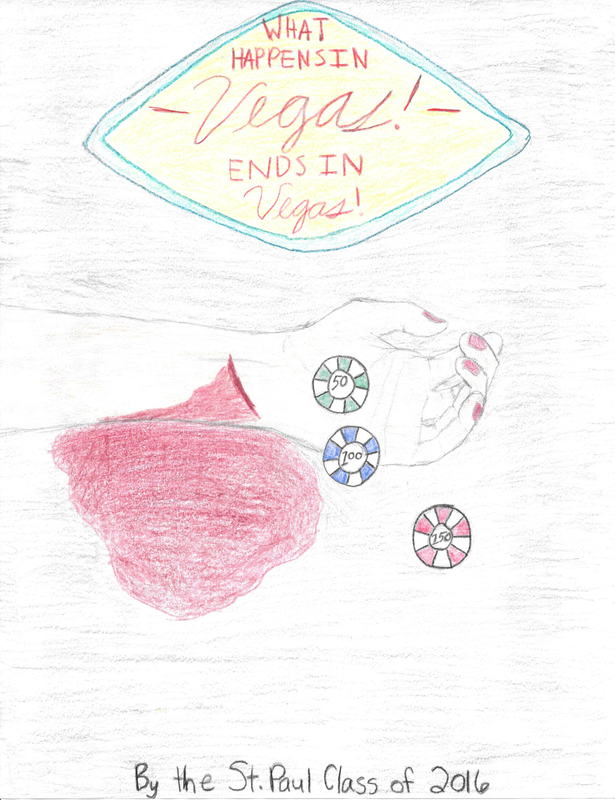 WHAT
HAPPENS IN
- Vegas! -
ENDS IN
Vegas!
50
100
250
By the St. Paul Class of 2016